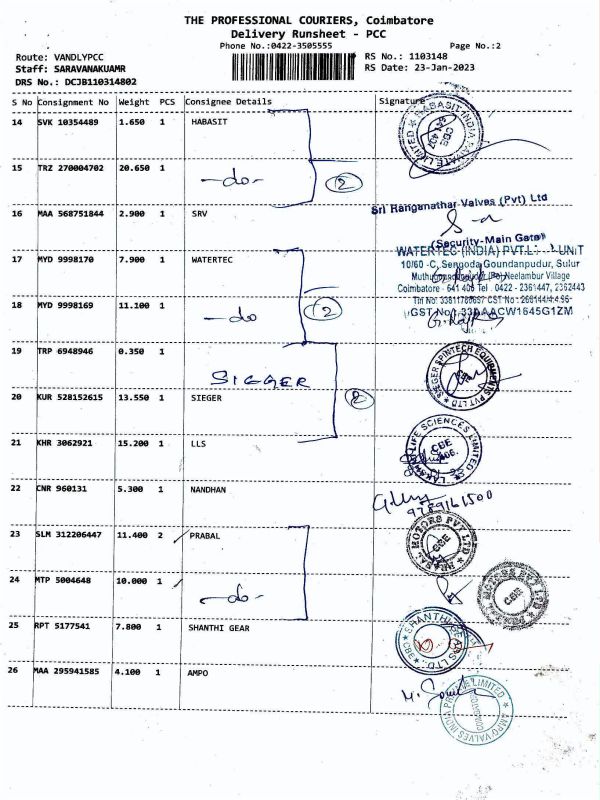 THE PROFESSIONAL COURIERS, Coimbatore
Delivery Runsheet - PCC
Phone No.:0422-3505555 Page No.:2
Route: VANDLYPCC RS No.: 1103148
Staff: SARAVANAKUAMR RS Date: 23-Jan-2023
DRS No.: DCJB110314802
S No Consignment No Weight PCS Consignee Details Signature
14 SVK 10354489 1.650 1 HABASIT
HABASIT INDIA PRIVATE LIMITED CBE 641 407
15 TRZ 270004702 20.650 1 -do- 2
Sri Ranganathar Valves (Pvt) Ltd
16 MAA 568751844 2.900 1 SRV
(Security-Main Gate)
17 MYD 9998170 7.900 1 WATERTEC
WATERTEC (INDIA) PVT.L UNIT
10/60 -C, Sengoda Goundanpudur, Sulur
Neelambur Village
Coimbatore - 641 406 Tel . 0422 - 2361447, 2362443
18 MYD 9998169 11.100 1 -do- 2
GST No: 33DAACW1645G1ZM
19 TRP 6948946 0.350 1
SIGGER
SIEGER SPINTECH EQUIPMENTS PVT LTD
20 KUR 528152615 13.550 1 SIEGER 2
21 KHR 3062921 15.200 1 LLS
LAKSHMI LIFE SCIENCES LIMITED CBE
22 CNR 960131 5.300 1 NANDHAN
9789161500
23 SLM 312206447 11.400 2 PRABAL
MOTORS PVT LTD CBE
24 MTP 5004648 10.000 1 -do-
MOTORS PVT LTD CBE
25 RPT 5177541 7.800 1 SHANTHI GEAR
SHANTHI GEARS LTD.
26 MAA 295941585 4.100 1 AMPO
AMPO VALVES INDIA PRIVATE LIMITED